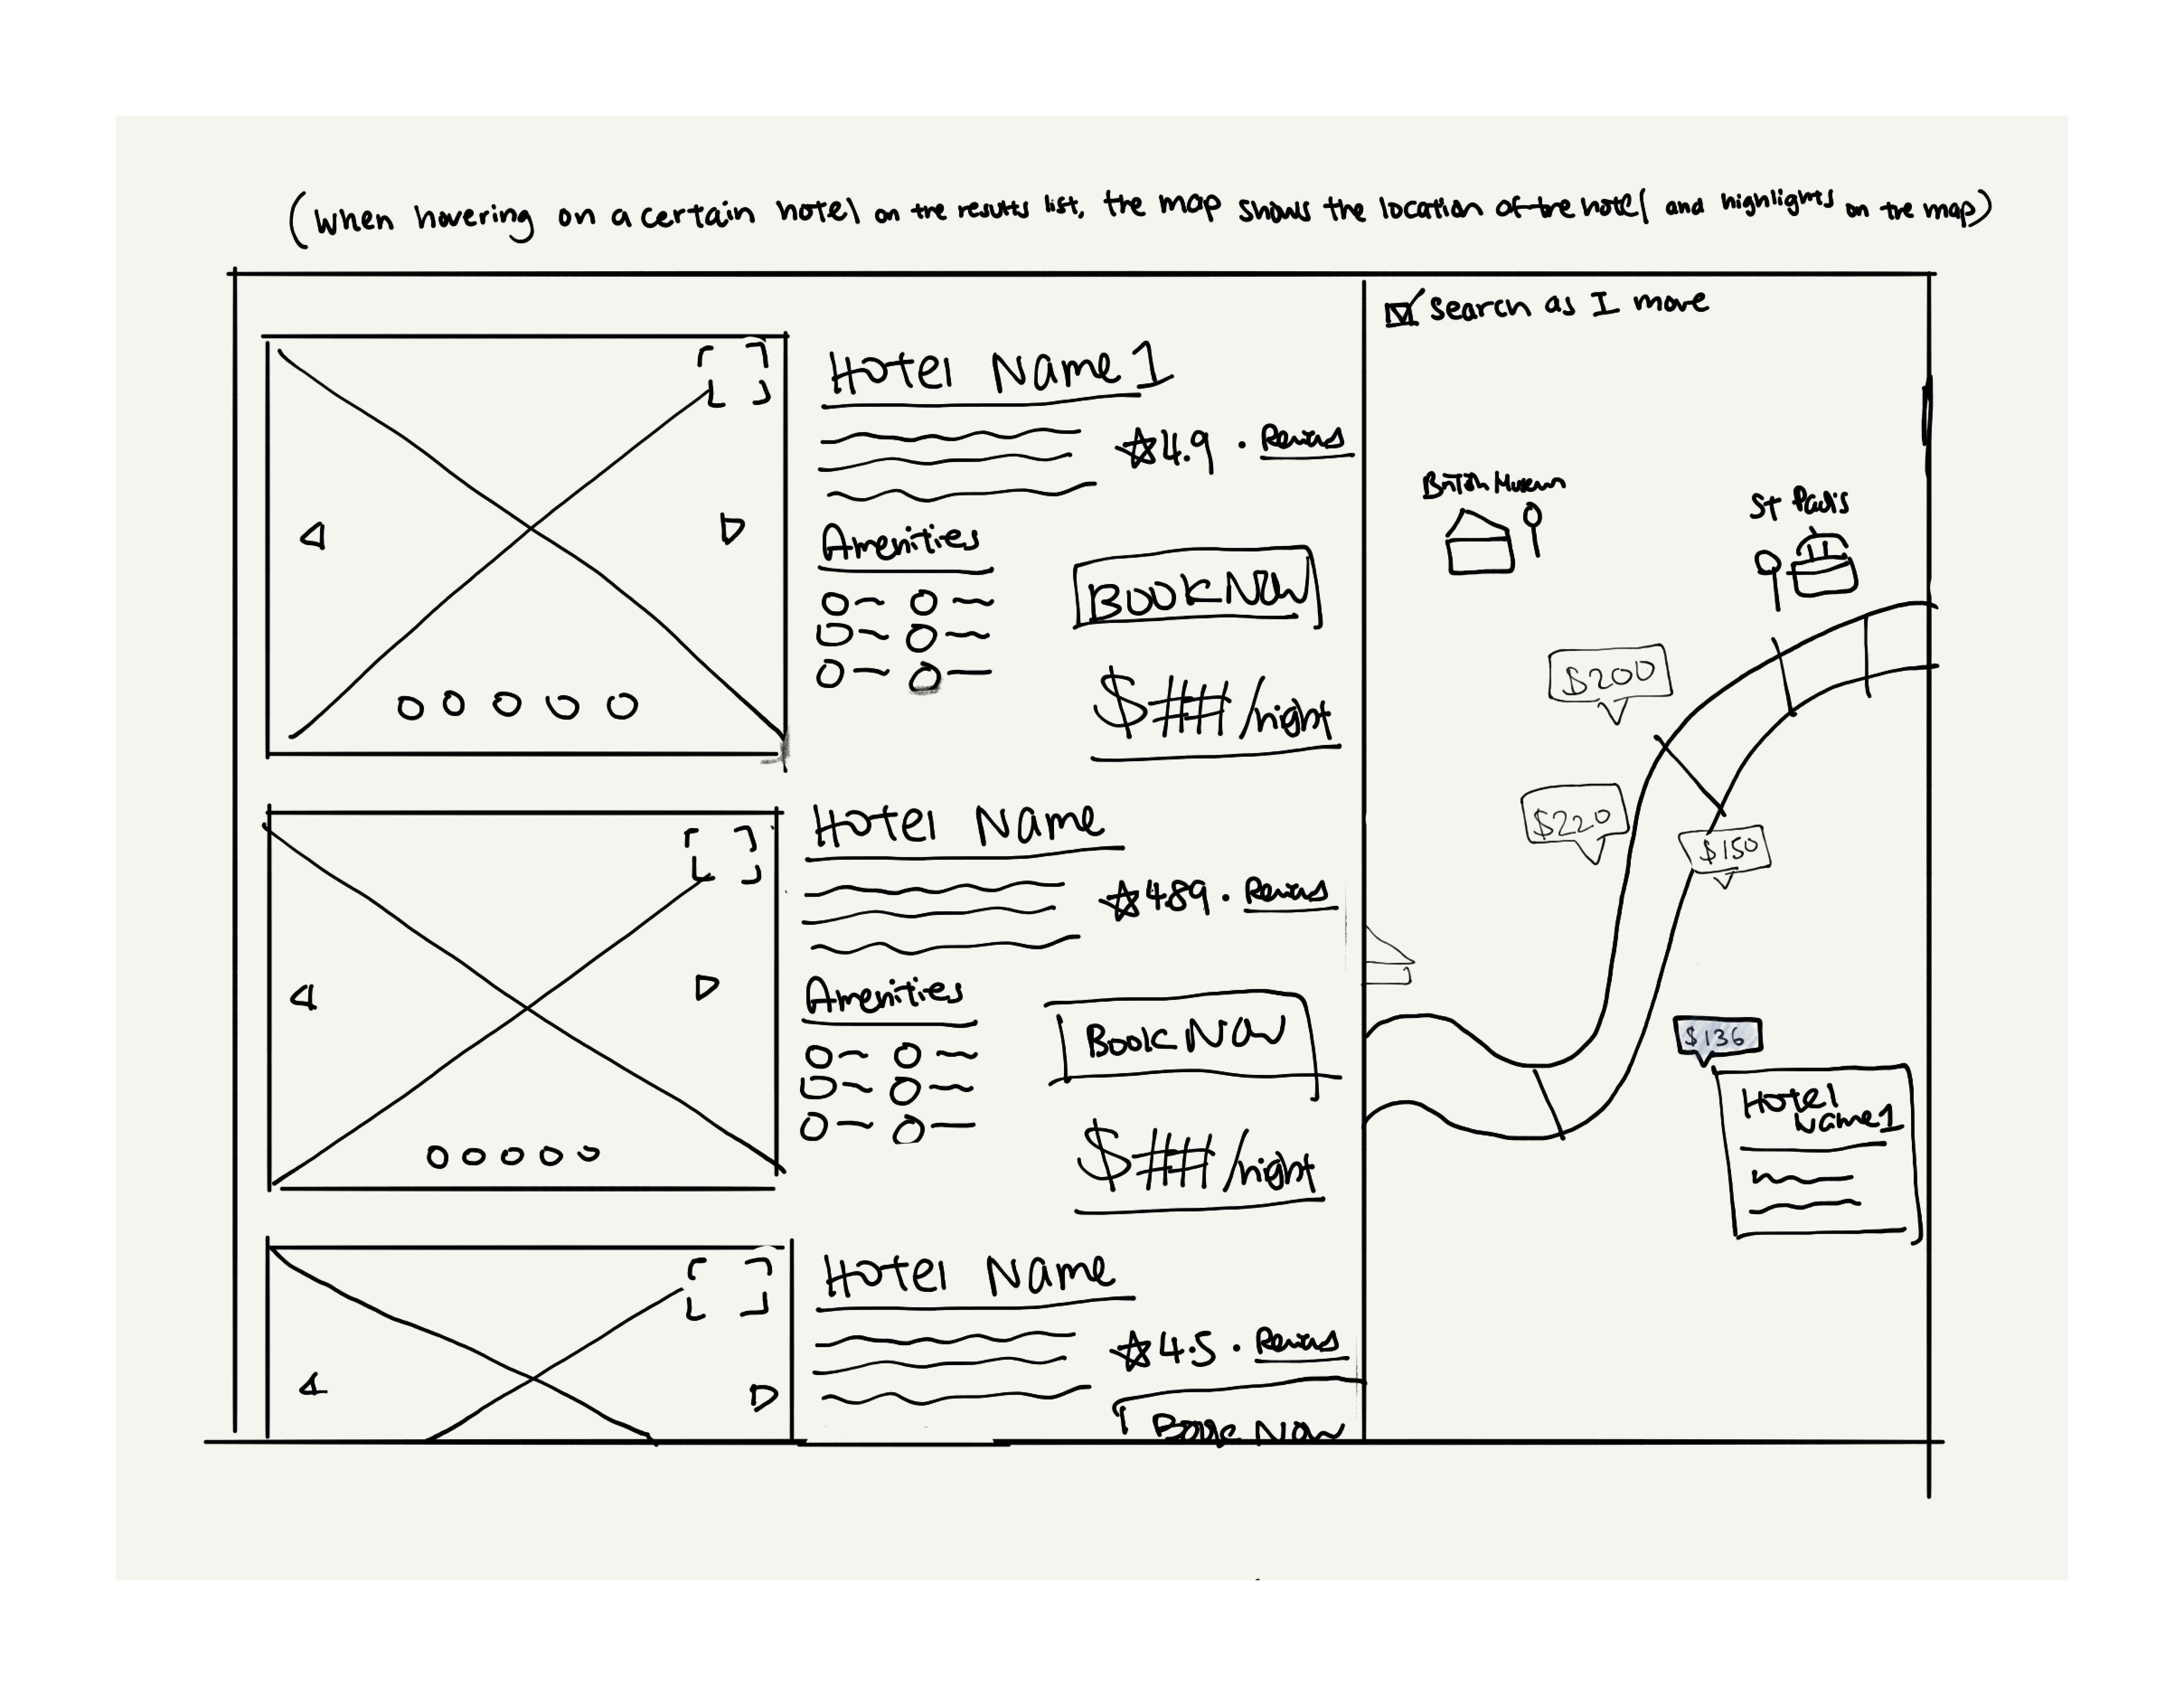 (When hovering on a certain hotel on the results list, the map shows the location of the hotel and highlights on the map)
Search as I move
Hotel Name 1
4.9 . Reviews
Amenities
BOOK NOW
$##/night
Hotel Name
4.89 . Reviews
Amenities
BOOK NOW
$##/night
Hotel Name
4.5 . Reviews
Book Now
British Museum
St Paul's
$200
$220
$150
$136
Hotel
Name 1